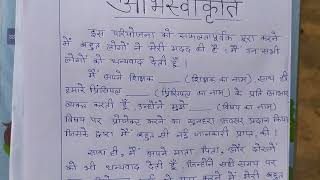 अभिस्वीकृति
इस परियोजना को सफलतापूर्वक पूरा करने
में बहुत लोगों ने मेरी मदद की है। मैं उन सभी
लोगों को धन्यवाद देती हूँ।
मैं अपने शिक्षक ____ (शिक्षक का नाम) साथ ही
हमारे प्रिंसिपल ____ (प्रिंसिपल का नाम) के प्रति आभार
व्यक्त करती हूँ, उन्होंने मुझे ____ (विषय का नाम)
विषय पर प्रोजेक्ट करने का सुनहरा अवसर प्रदान किया
जिसके द्वारा मैं बहुत सी नई जानकारी प्राप्त की।
साथ ही, मैं अपने माता पिता, और दोस्तों
को भी धन्यवाद देती हूँ, जिन्होंने सही समय पर
करने में मेरी बहुत